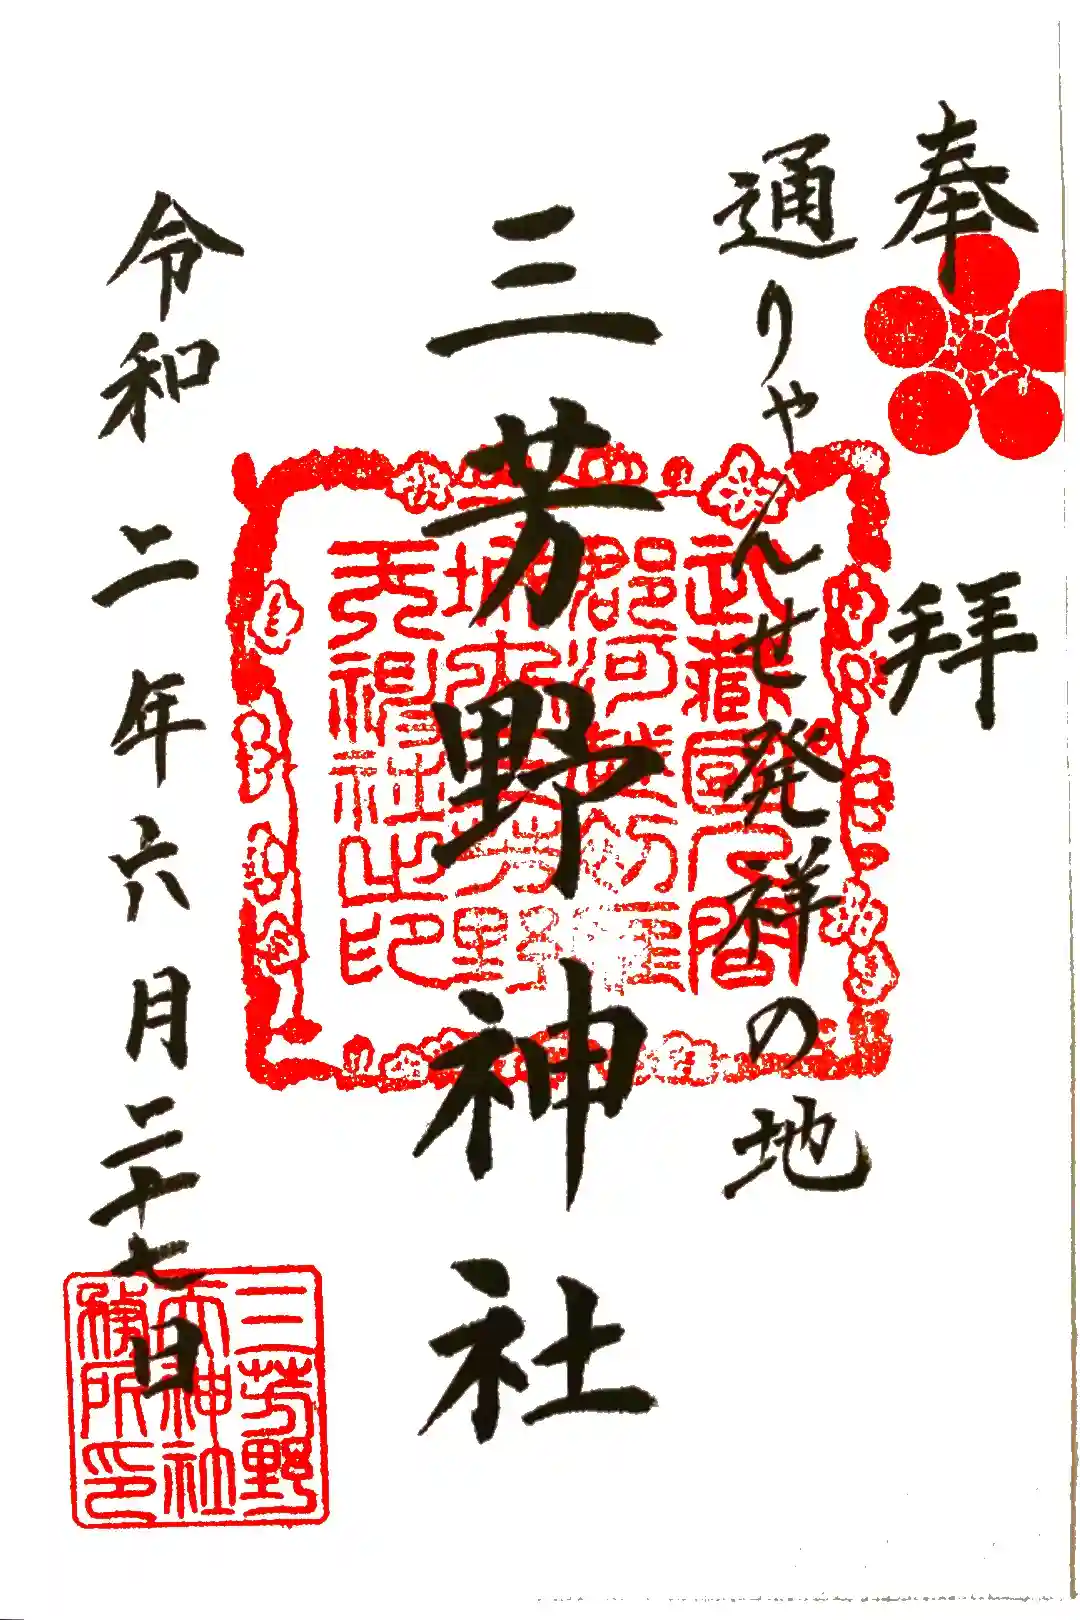 奉拝
通りゃんせ発祥の地
三芳野神社
令和二年六月二十七日
武蔵國入間
郡河越初雁
城内三芳野
天神社之印
三芳野
天神社
務所印